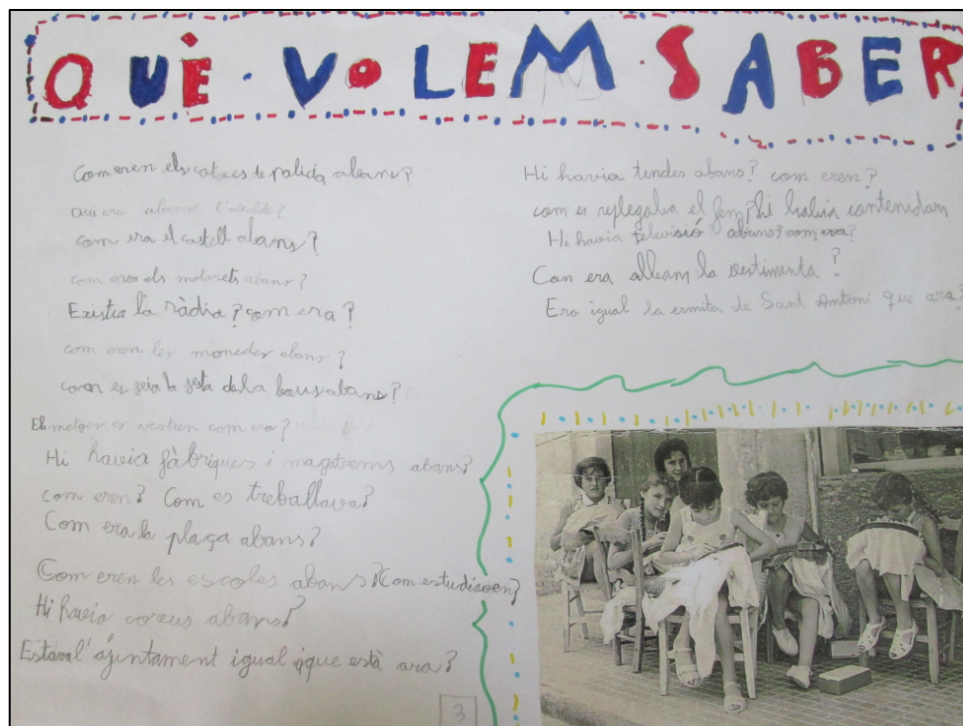 QUÈ · VOLEM · SABER
Com eren els cotxes de policia abans?
Qui era abans l'alcalde?
com era el castell abans?
com eren els abans?
Existia la ràdio? com era?
com eren les monedes abans?
com es feia la festa de la abans?
El metges es vestien com ara?
Hi havia fàbriques i magatzems abans?
com eren? Com es treballava?
Com era la plaça abans?
Com eren les escoles abans? Com estudiaven?
Hi havia correus abans?
Estava l'ajuntament igual que està ara?
3
Hi havia tendes abans? com eren?
com es replegaba el fem hi habia
Hi havia televisió abans? com era?
Con era la vestimenta?
Era igual la ermita de Sant Antoni que ara?